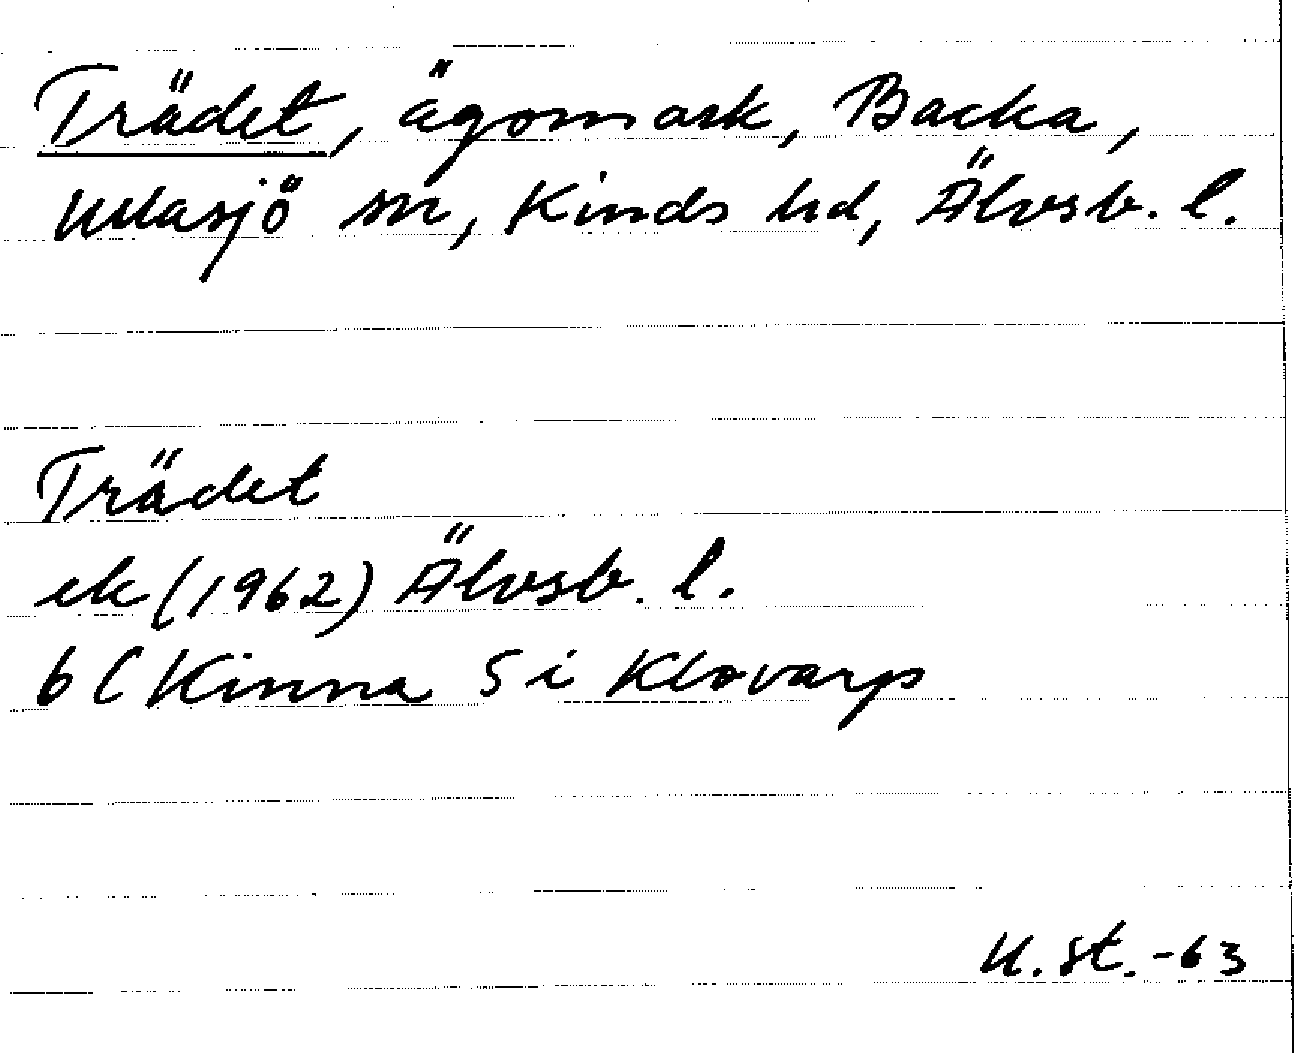 Trädet, ägomark, Backa,
Ullasjö sn, Kinds hd, Älvsb. l.
Trädet
ek (1962) Älvsb. l.
6 C Kinna 5 i Klovarp
U. St. -63